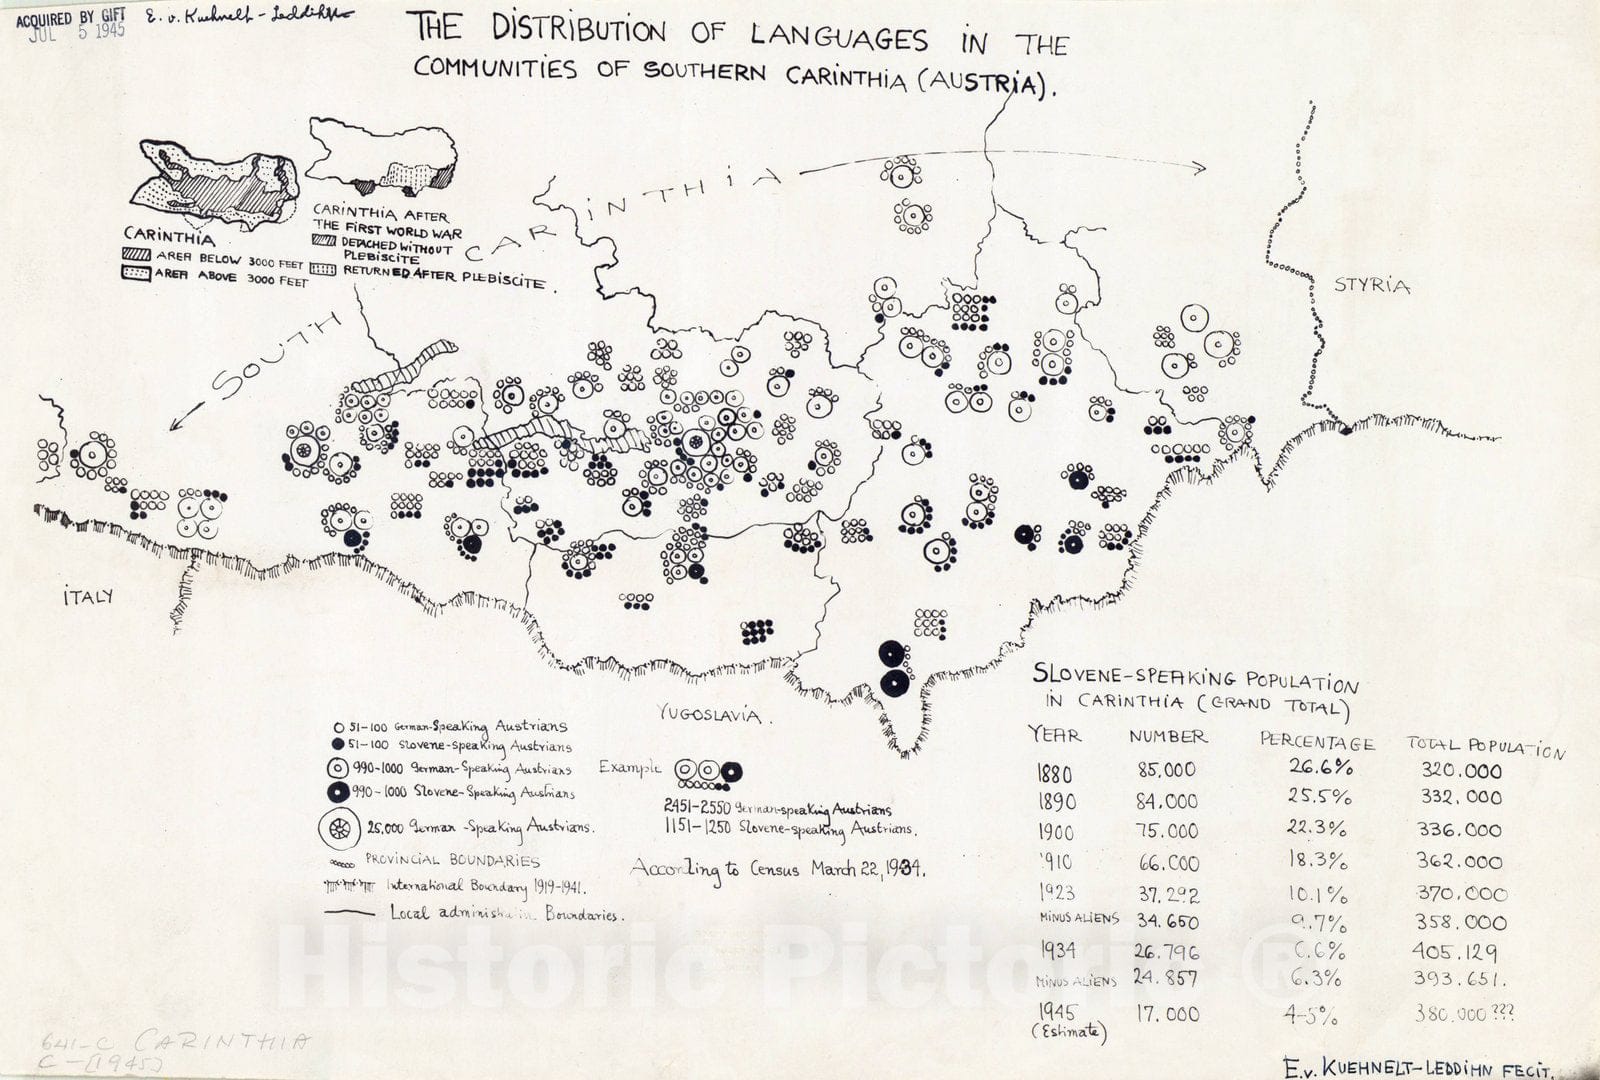 ACQUIRED BY GIFT
JUL 5 1945
E. v. Kuehnelt-Leddihn
THE DISTRIBUTION OF LANGUAGES IN THE
COMMUNITIES OF SOUTHERN CARINTHIA (AUSTRIA).
CARINTHIA
AREA BELOW 3000 FEET
AREA ABOVE 3000 FEET
CARINTHIA AFTER
THE FIRST WORLD WAR
DETACHED WITHOUT
PLEBISCITE
RETURNED AFTER PLEBISCITE.
SOUTH CARINTHIA
STYRIA
ITALY
YUGOSLAVIA.
51-100 German-Speaking Austrians
51-100 Slovene-speaking Austrians
990-1000 German-Speaking Austrians
990-1000 Slovene-Speaking Austrians
25,000 German-Speaking Austrians.
PROVINCIAL BOUNDARIES
International Boundary 1919-1941.
Local administratin Boundaries.
Example
2451-2550 German-speaking Austrians
1151-1250 Slovene-speaking Austrians.
According to Census March 22, 1934.
SLOVENE-SPEAKING POPULATION
IN CARINTHIA (GRAND TOTAL)
YEAR NUMBER PERCENTAGE TOTAL POPULATION
1880 85.000 26.6% 320.000
1890 84.000 25.5% 332.000
1900 75.000 22.3% 336.000
1910 66.000 18.3% 362.000
1923 37.292 10.1% 370.000
MINUS ALIENS 34.650 9.7% 358.000
1934 26.796 6.6% 405.129
MINUS ALIENS 24.857 6.3% 393.651.
1945 17.000 4-5% 380.000???
(Estimate)
Historic Pictoric ®
641-C CARINTHIA
C-[1945]
E.v. KUEHNELT-LEDDIHN FECIT.